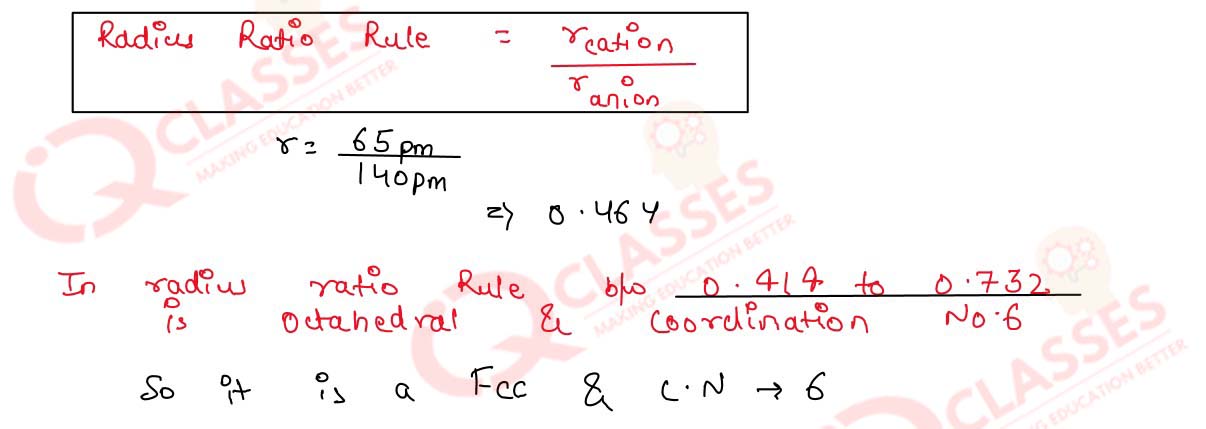 Radius Ratio Rule = r cation
r anion
r = 65 pm
140 pm
⇒ 0.464
In radius ratio Rule b/o 0.414 to 0.732
is Octahedral & Coordination No.6
So it is a Fcc & C.N → 6
IQ CLASSES
MAKING EDUCATION BETTER
IQ CLASSES
MAKING EDUCATION BETTER
IQ CLASSES
EDUCATION BETTER